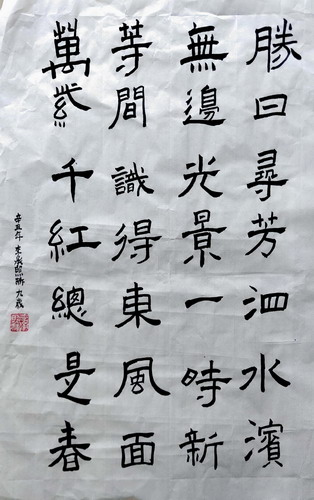 勝日尋芳泗水濱
無邊光景一時新
等間識得東風面
萬紫千紅總是春
辛丑年 朱
九歲